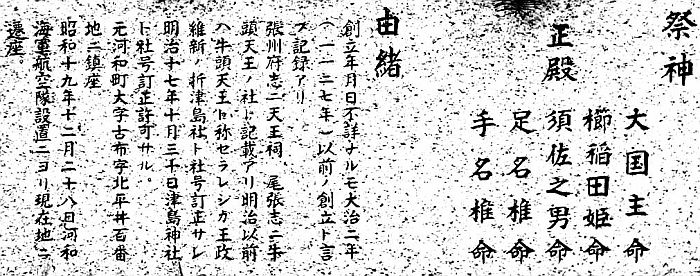 祭神
大国主命
櫛稲田姫命
正殿 須佐之男命
足名椎命
手名椎命
由緒
創立年月日不詳ナルモ大治二年
(一一二七年)以前ノ創立ト言
フ記録アリ
張州府志ニ天王祠、尾張志ニ牛
頭天王ノ社ト記載アリ明治以前
ハ牛頭天王ト称セラレシガ王政
維新ノ折津島社ト社号訂正サレ
明治十七年十月三十日津島神社
ト社号訂正許可サル。
元河和町大字古布字北平井百番
地ニ鎮座
昭和十九年十二月二十八日河和
海軍航空隊設置ニヨリ現在地ニ
遷座。